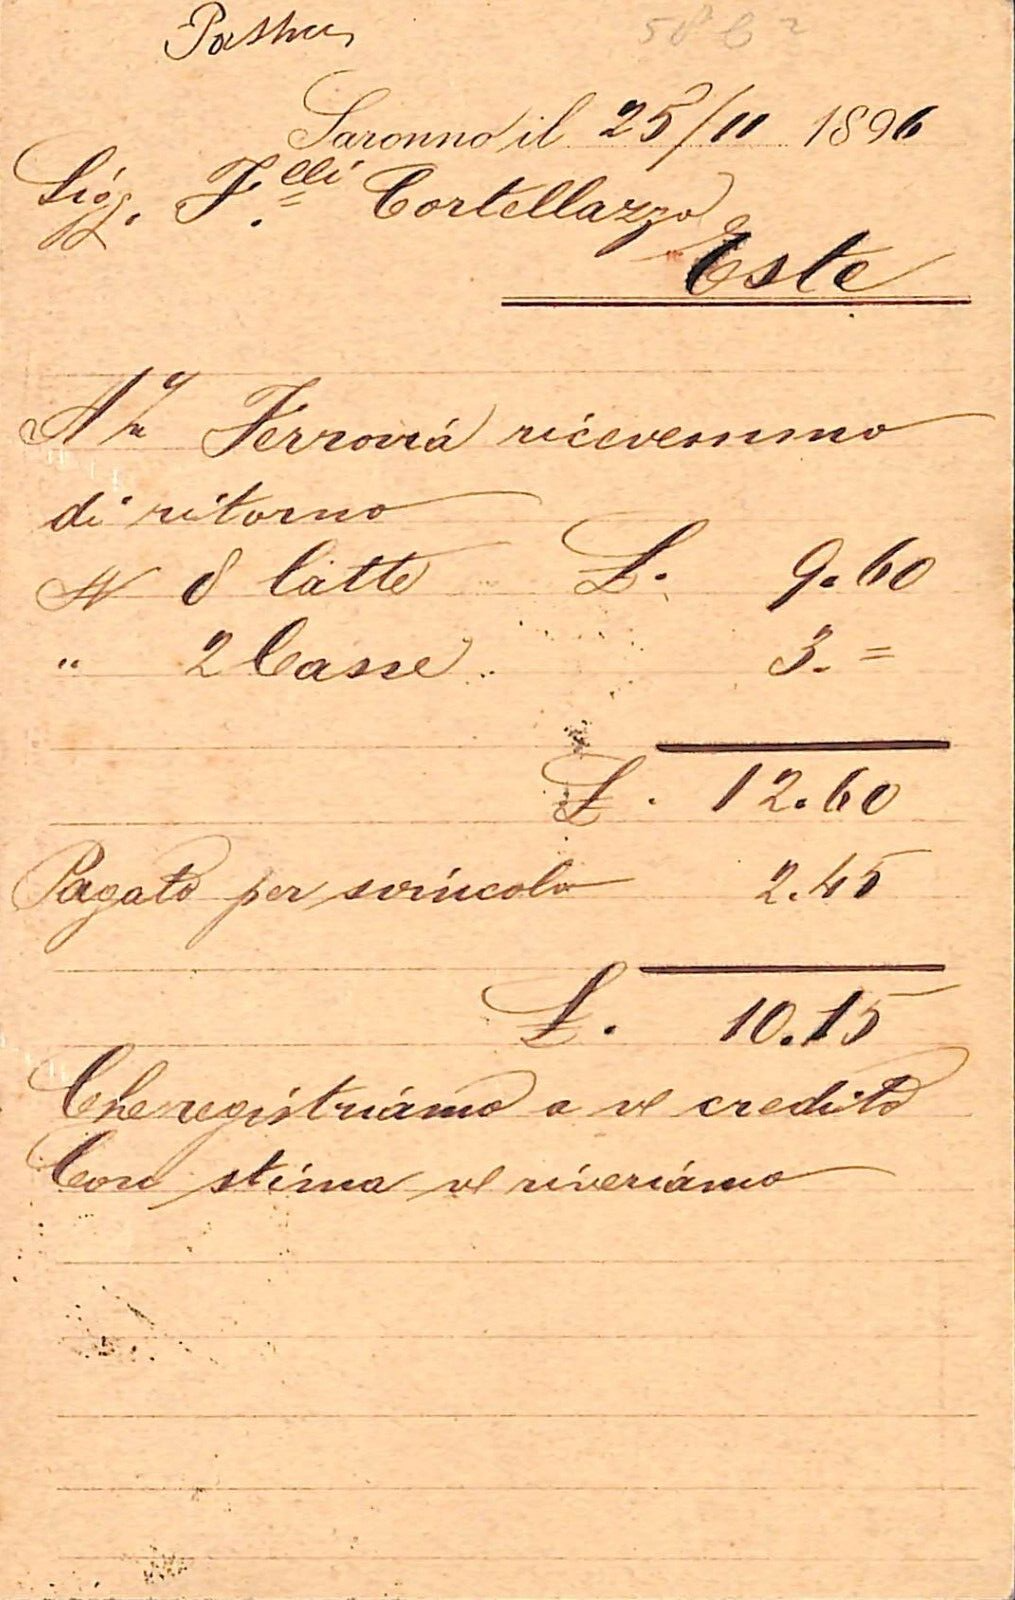 Saronno il 25/11 1896
Sigg. F.lli Cortellazzo
Este
A Ferrovia ricevemmo
di ritorno
N 8 latte L. 9.60
" 2 Casse 3.=
L. 12.60
Pagato per svincolo 2.45
L. 10.15
Che registriamo a vs credito
Con stima vs riveriamo